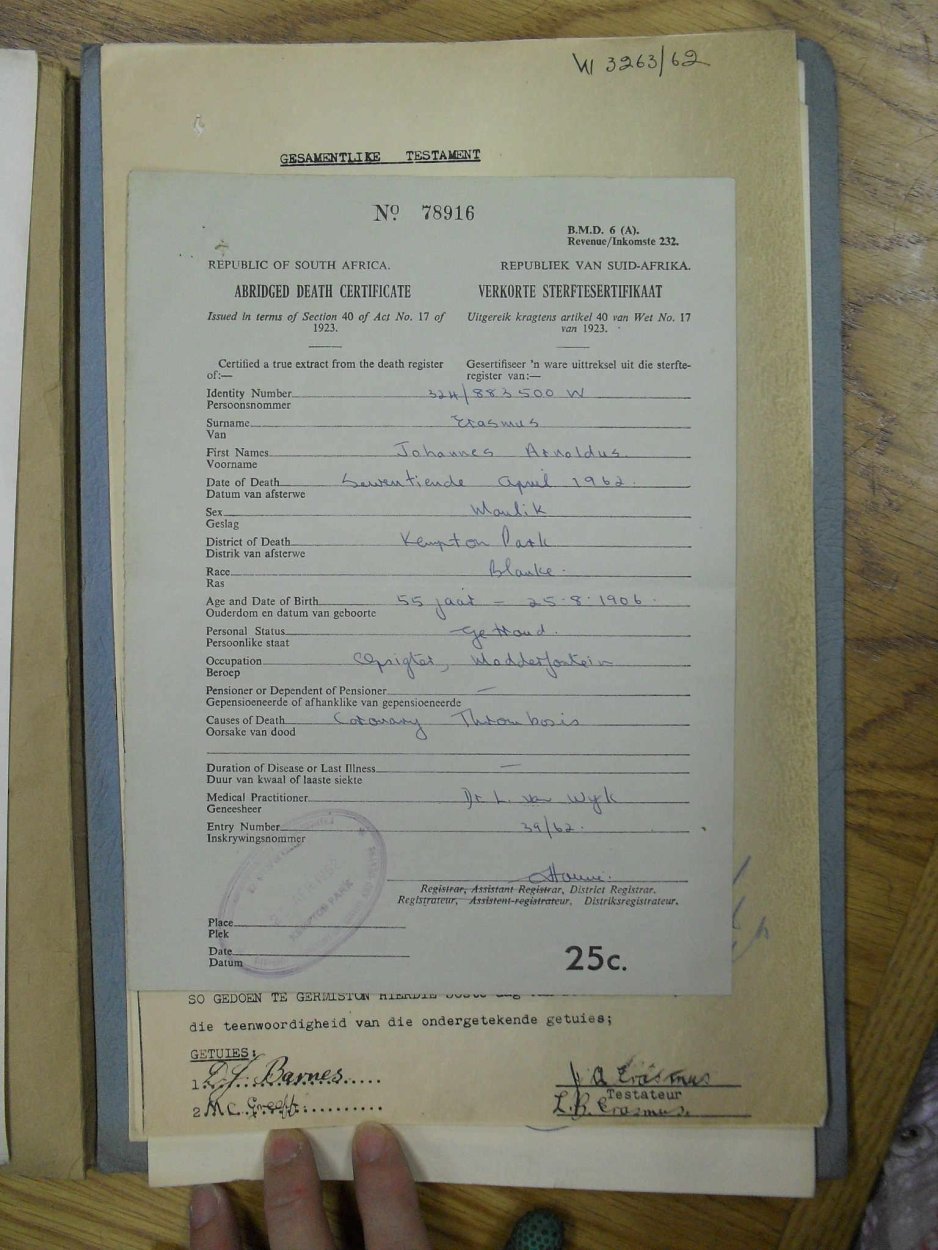 W 3263/62
GESAMENTLIKE TESTAMENT
Nº 78916
B.M.D. 6 (A).
Revenue/Inkomste 232.
REPUBLIC OF SOUTH AFRICA. REPUBLIEK VAN SUID-AFRIKA.
ABRIDGED DEATH CERTIFICATE VERKORTE STERFTESERTIFIKAAT
Issued in terms of Section 40 of Act No. 17 of Uitgereik kragtens artikel 40 van Wet No. 17
1923. van 1923.
Certified a true extract from the death register Gesertifiseer 'n ware uittreksel uit die sterfte-
of:— register van:—
Identity Number 324/883500 W
Persoonsnommer
Surname Erasmus
Van
First Names Johannes Arnoldus.
Voorname
Date of Death Sewentiende April 1962.
Datum van afsterwe
Sex Manlik
Geslag
District of Death Kempton Park
Distrik van afsterwe
Race Blanke.
Ras
Age and Date of Birth 55 jaar — 25.8.1906.
Ouderdom en datum van geboorte
Personal Status Getroud.
Persoonlike staat
Occupation Opsigter, Modderfontein
Beroep
Pensioner or Dependent of Pensioner —
Gepensioeneerde of afhanklike van gepensioeneerde
Causes of Death Coronary Thrombosis
Oorsake van dood
Duration of Disease or Last Illness —
Duur van kwaal of laaste siekte
Medical Practitioner Dr L. van Wyk
Geneesheer
Entry Number 39/62.
Inskrywingsnommer
Registrar, Assistant Registrar, District Registrar.
Registrateur, Assistent-registrateur, Distriksregistrateur.
KEMPTON PARK
Place
Plek
Date
Datum
25c.
SO GEDOEN TE GERMISTON HIERDIE
die teenwoordigheid van die ondergetekende getuies;
GETUIES:
1. Barnes J A Erasmus
Testateur
2. M.C. Greeff L.B. Erasmus.